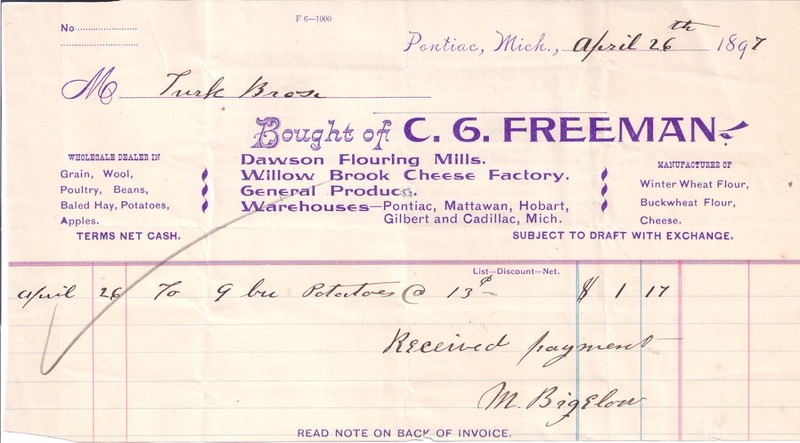 No
F 6—1000
Pontiac, Mich., April 26th 1897
M Turk Bros.
Bought of C. G. FREEMAN.
WHOLESALE DEALER IN
Grain, Wool,
Poultry, Beans,
Baled Hay, Potatoes,
Apples.
TERMS NET CASH.
Dawson Flouring Mills.
Willow Brook Cheese Factory.
General Produce.
Warehouses—Pontiac, Mattawan, Hobart,
Gilbert and Cadillac, Mich.
MANUFACTURER OF
Winter Wheat Flour,
Buckwheat Flour,
Cheese.
SUBJECT TO DRAFT WITH EXCHANGE.
List—Discount—Net.
April 26 To 9 bu Potatoes @ 13¢ $ 1 17
Received payment
M. Bigelow
READ NOTE ON BACK OF INVOICE.